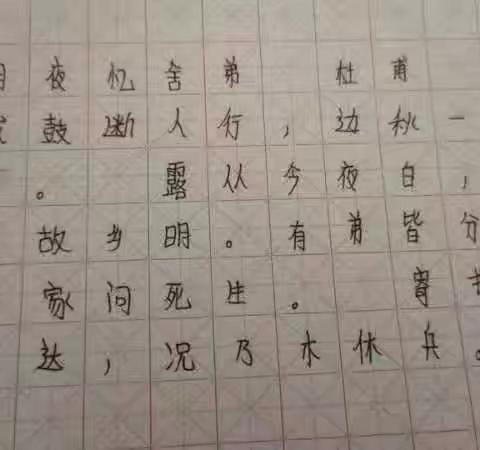 月夜忆舍弟 杜甫
鼓断人行，边秋一
。露从今夜白，
故乡明。有弟皆分
家问死生。寄书
达，况乃木休兵。